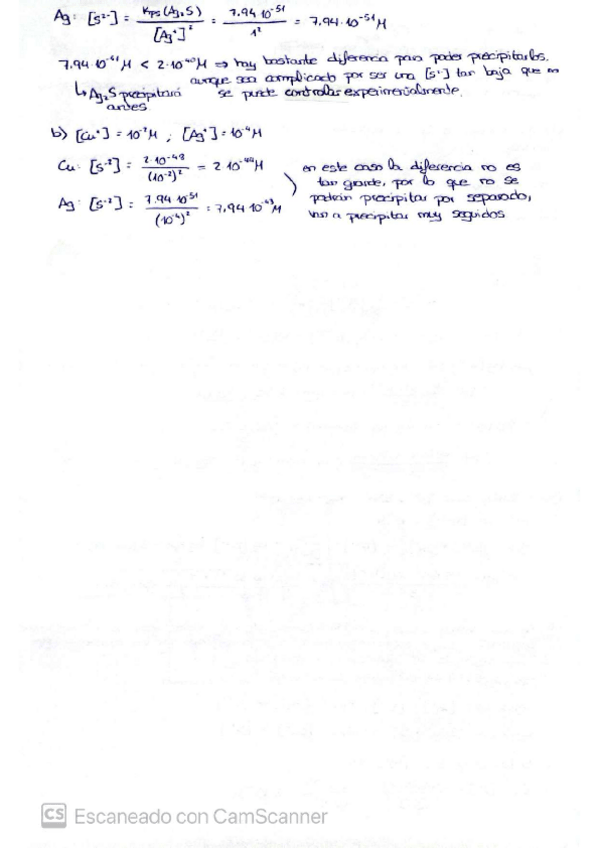 Ag: [S²⁻] = Kps(Ag₂S) / [Ag⁺]² = 7.94·10⁻⁵¹ / 1² = 7.94·10⁻⁵¹ M
7.94·10⁻⁵¹ M < 2·10⁻⁴⁰ M ⇒ hay bastante diferencia para poder precipitarlos.
aunque sea complicado por ser una [S²⁻] tan baja que no
↳ Ag₂S precipitará se puede controlar experimentalmente.
antes
b) [Cu⁺] = 10⁻² M ; [Ag⁺] = 10⁻⁴ M
Cu: [S⁻²] = 2·10⁻⁴⁸ / (10⁻²)² = 2·10⁻⁴⁴ M
Ag: [S⁻²] = 7.94·10⁵¹ / (10⁻⁴)² = 7,94·10⁻⁴³ M
en este caso la diferencia no es
tan grande, por lo que no se
podrán precipitar por separado,
van a precipitar muy seguidos
CS Escaneado con CamScanner